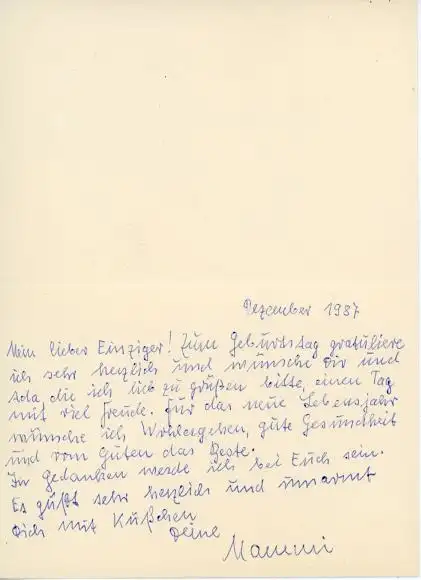 Dezember 1987
Mein lieber Einziger! Zum Geburtstag gratuliere
ich sehr herzlich und wünsche Dir und
Ada, die ich lieb zu grüßen bitte, einen Tag
mit viel Freude. Für das neue Lebensjahr
wünsche ich Wohlergehen, gute Gesundheit
und vom Guten das Beste.
In Gedanken werde ich bei Euch sein.
Es güßt sehr herzlich und umarmt
Dich mit Küßchen
Deine
Mammi